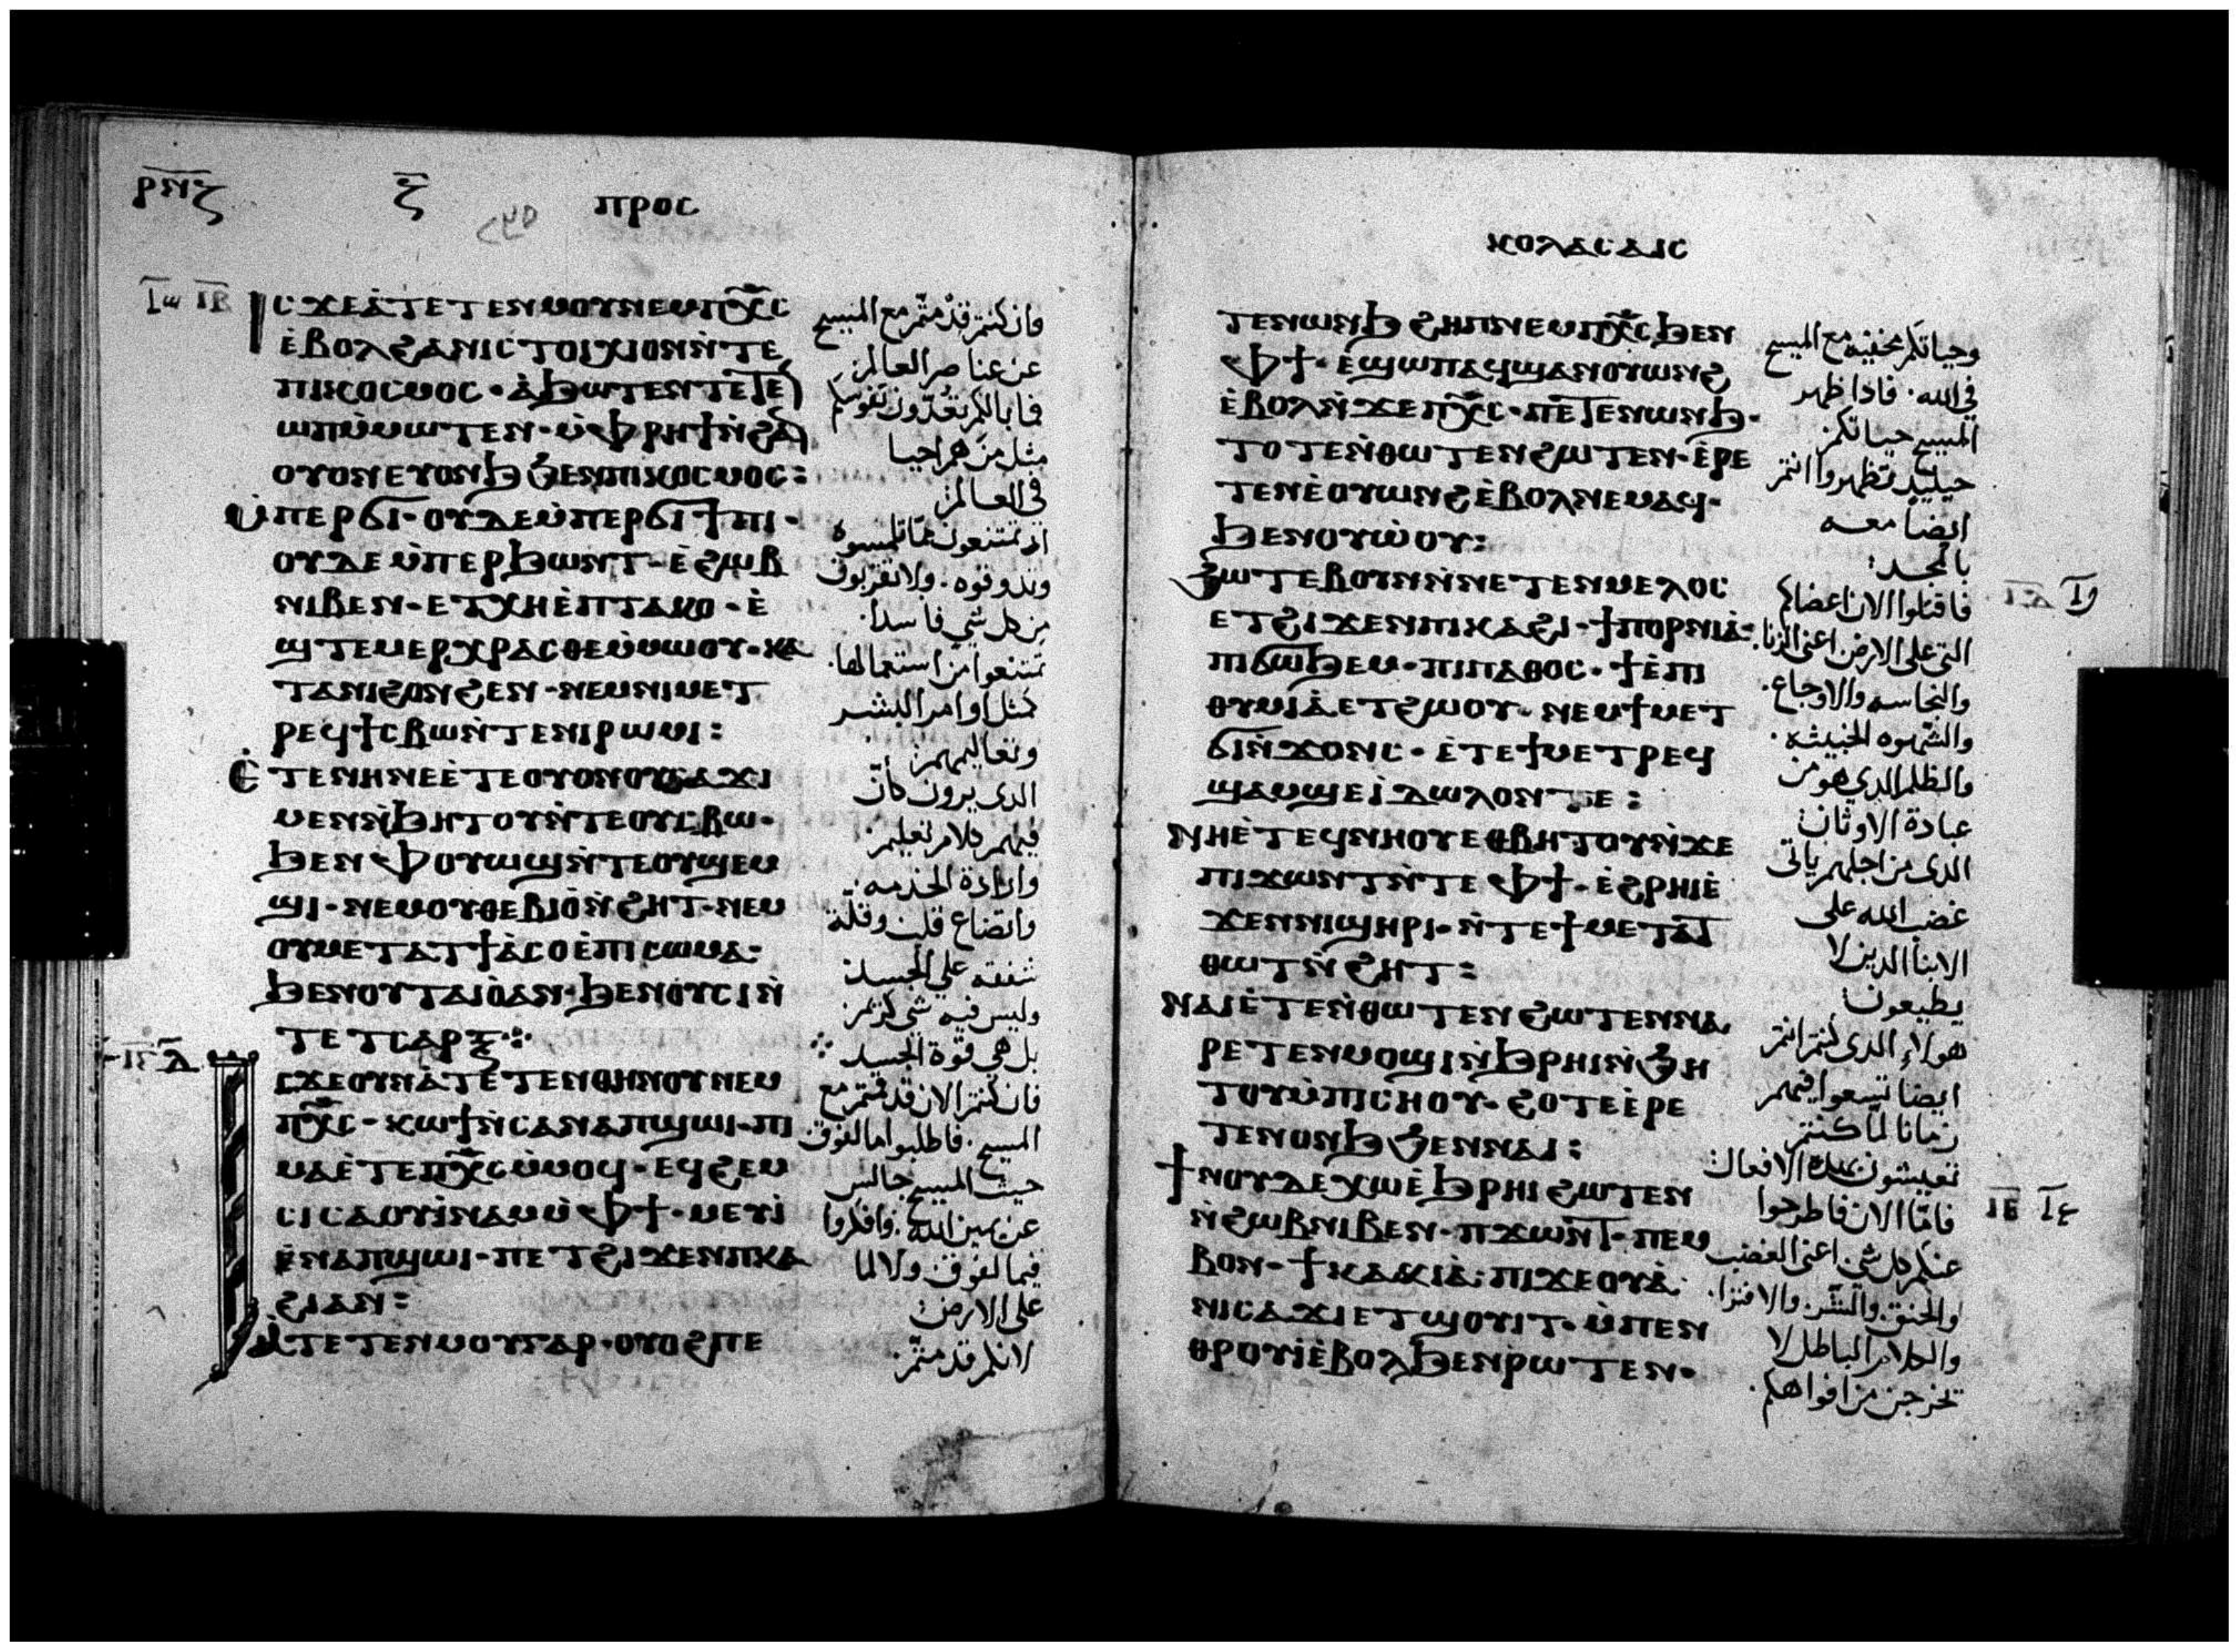 ⲣⲛⲍ ⲍ ⲡⲣⲟⲥ
ⲓⲥϫⲉⲁⲧⲉⲧⲉⲛⲙⲟⲩⲛⲉⲙⲡⲭⲥ
ⲉⲃⲟⲗϩⲁⲛⲓⲥⲧⲟⲓⲭⲓⲟⲛⲛⲧⲉ
ⲡⲓⲕⲟⲥⲙⲟⲥ · ⲁϧⲱⲧⲉⲛⲧⲉⲧⲉ
ⲱⲡⲙⲙⲱⲧⲉⲛ · ⲙⲫⲣⲏϯⲛϩⲁ
ⲟⲩⲟⲛⲉⲩⲟⲛϧϧⲉⲛⲡⲓⲕⲟⲥⲙⲟⲥ :
ⲙⲡⲉⲣϭⲓ · ⲟⲩⲇⲉⲙⲡⲉⲣϭⲓϯⲡⲓ ·
ⲟⲩⲇⲉⲙⲡⲉⲣϧⲱⲛⲧ · ⲉϩⲱⲃ
ⲛⲓⲃⲉⲛ · ⲉⲧⲭⲏⲉⲡⲧⲁⲕⲟ · ⲉ
ϣⲧⲉⲙⲉⲣⲭⲣⲁⲥⲑⲉⲙⲙⲱⲟⲩ · ⲕⲁ
ⲧⲁⲛⲓϩⲟⲛϩⲉⲛ · ⲛⲉⲙⲛⲓⲙⲉⲧ
ⲣⲉϥϯⲥⲃⲱⲛⲧⲉⲛⲓⲣⲱⲙⲓ :
ⲉⲧⲉⲛⲏⲛⲉⲉⲧⲉⲟⲩⲟⲛⲟⲩⲥⲁϫⲓ
ⲙⲉⲛⲛϧⲏⲧⲟⲩⲛⲧⲉⲟⲩⲥⲃⲱ ·
ϧⲉⲛⲫⲟⲩⲱϣⲛⲧⲉⲟⲩϣⲉⲙ
ϣⲓ · ⲛⲉⲙⲟⲩⲑⲉⲃⲓⲟⲛϩⲏⲧ · ⲛⲉⲙ
ⲟⲩⲙⲉⲧⲁⲧϯⲁⲥⲟⲉⲡⲓⲥⲱⲙⲁ ·
ϧⲉⲛⲟⲩⲧⲁⲓⲟⲁⲛ · ϧⲉⲛⲟⲩⲥⲓⲛ
ⲧⲉⲧⲥⲁⲣⲝ ⁘
ⲓⲥϫⲉⲟⲩⲛⲁⲧⲉⲧⲉⲛⲑⲏⲛⲟⲩⲛⲉⲙ
ⲡⲭⲥ · ⲕⲱϯⲛⲥⲁⲛⲁⲡϣⲱⲓ · ⲡⲓ
ⲙⲁⲉⲧⲉⲡⲭⲥⲙⲙⲟϥ · ⲉϥϩⲉⲙ
ⲥⲓⲥⲁⲟⲩⲓⲛⲁⲙⲙⲫϯ · ⲙⲉⲩⲓ
ⲉⲛⲁⲡϣⲱⲓ · ⲡⲉⲧϩⲓϫⲉⲛⲡⲕⲁ
ϩⲓⲁⲛ :
ⲁⲧⲉⲧⲉⲛⲙⲟⲩⲅⲁⲣ · ⲟⲩⲟϩⲡⲉ
فان كنتم قد متم مع المسيح
عن عناصر العالم
فما بالكم تعدون نفوسكم
مثل من هم احيا
في العالم
وتدوقوه · ولا تقربون
من كل شي فاسدا ·
تمتنعوا من استعمالها ·
كمثل اوامر البشر
وتعاليمهم
الدى يرون كان
فيهم كلام تعليم
وارادة الخدمه
واتضاع قلب وقلة
شفقه علي الجسد
وليس فيه شي كرم
بل هي قوة الجسد ⁘
فان كنتم الان قد قمتم مع
المسيح · فاطلبوا ما لفوق
حيث المسيح جالس
عن يمين الله · وافكروا
فيما لفوق ولا لما
على الارض
لانكم قد متم
ⲕⲟⲗⲁⲥⲁⲓⲥ
ⲧⲉⲛⲱⲛϧϩⲏⲡⲛⲉⲙⲡⲭⲥϧⲉⲛ
ⲫϯ · ⲉϣⲱⲡⲁϥϣⲁⲛⲟⲩⲱⲛϩ
ⲉⲃⲟⲗⲛϫⲉⲡⲭⲥ · ⲡⲉⲧⲉⲛⲱⲛϧ ·
ⲧⲟⲧⲉⲛⲑⲱⲧⲉⲛϩⲱⲧⲉⲛ · ⲉⲣⲉ
ⲧⲉⲛⲉⲟⲩⲱⲛϩⲉⲃⲟⲗⲛⲉⲙⲁϥ ·
ϧⲉⲛⲟⲩⲱⲟⲩ :
ϧⲱⲧⲉⲃⲟⲩⲛⲛⲛⲉⲧⲉⲛⲙⲉⲗⲟⲥ
ⲉⲧϩⲓϫⲉⲛⲡⲓⲕⲁϩⲓ · ϯⲡⲟⲣⲛⲓⲁ ·
ⲡⲓϭⲱϧⲉⲙ · ⲡⲓⲡⲁⲑⲟⲥ · ϯⲉⲡⲓ
ⲑⲩⲙⲓⲁⲉⲧϩⲱⲟⲩ · ⲛⲉⲙϯⲙⲉⲧ
ϭⲓⲛϫⲟⲛⲥ · ⲉⲧⲉϯⲙⲉⲧⲣⲉϥ
ϣⲁⲙϣⲉⲓⲇⲱⲗⲟⲛⲧⲉ :
ⲛⲏⲉⲧⲉϥⲛⲏⲟⲩⲉⲑⲃⲏⲧⲟⲩⲛϫⲉ
ⲡⲓϫⲱⲛⲧⲛⲧⲉⲫϯ · ⲉϩⲣⲏⲓⲉ
ϫⲉⲛⲛⲓϣⲏⲣⲓ · ⲛⲧⲉϯⲙⲉⲧⲁⲧ
ⲑⲱⲧⲛϩⲏⲧ :
ⲛⲁⲓⲉⲧⲉⲛⲑⲱⲧⲉⲛϩⲱⲧⲉⲛⲛⲁ
ⲣⲉⲧⲉⲛⲙⲟϣⲓⲛϧⲣⲏⲓⲛϧⲏ
ⲧⲟⲩⲙⲡⲓⲥⲏⲟⲩ · ϩⲟⲧⲉⲉⲣⲉ
ⲧⲉⲛⲟⲛϧϧⲉⲛⲛⲁⲓ :
ϯⲛⲟⲩⲇⲉⲭⲱⲉϧⲣⲏⲓϩⲱⲧⲉⲛ
ⲛϩⲱⲃⲛⲓⲃⲉⲛ · ⲡϫⲱⲛⲧ · ⲡⲉⲙ
ⲃⲟⲛ · ϯⲕⲁⲕⲓⲁ · ⲡⲓϫⲉⲟⲩⲁ ·
ⲛⲓⲥⲁϫⲓⲉⲧϣⲟⲩⲓⲧ · ⲙⲡⲉⲛ
ⲑⲣⲟⲩⲓⲉⲃⲟⲗϧⲉⲛⲣⲱⲧⲉⲛ ·
وحياتكم مخفيه مع المسيح
في الله · فادا ظهر
المسيح حياتكم
حينيد تظهروا انتم
ايضا معه
بالمجد :
فاقتلوا الان اعضاكم
التي على الارض اعنى الزنا ·
والنجاسه والاوجاع ·
والشهوه الخبيثه ·
والظلم الدي هو من
عبادة الاوثان
الدى من اجلهم ياتى
غضب الله على
الابنا الدين لا
يطيعون
هولاء الدى كنتم انتم
ايضا تسعوا فيهم
زمانا لما كنتم
تعيشون بهده الافعال
فاما الان فاطرحوا
عنكم كل شي اعنى الغضب
والحنق · والشر · والافترا ·
والكلام الباطل لا
تخرجن من افواهكم ·